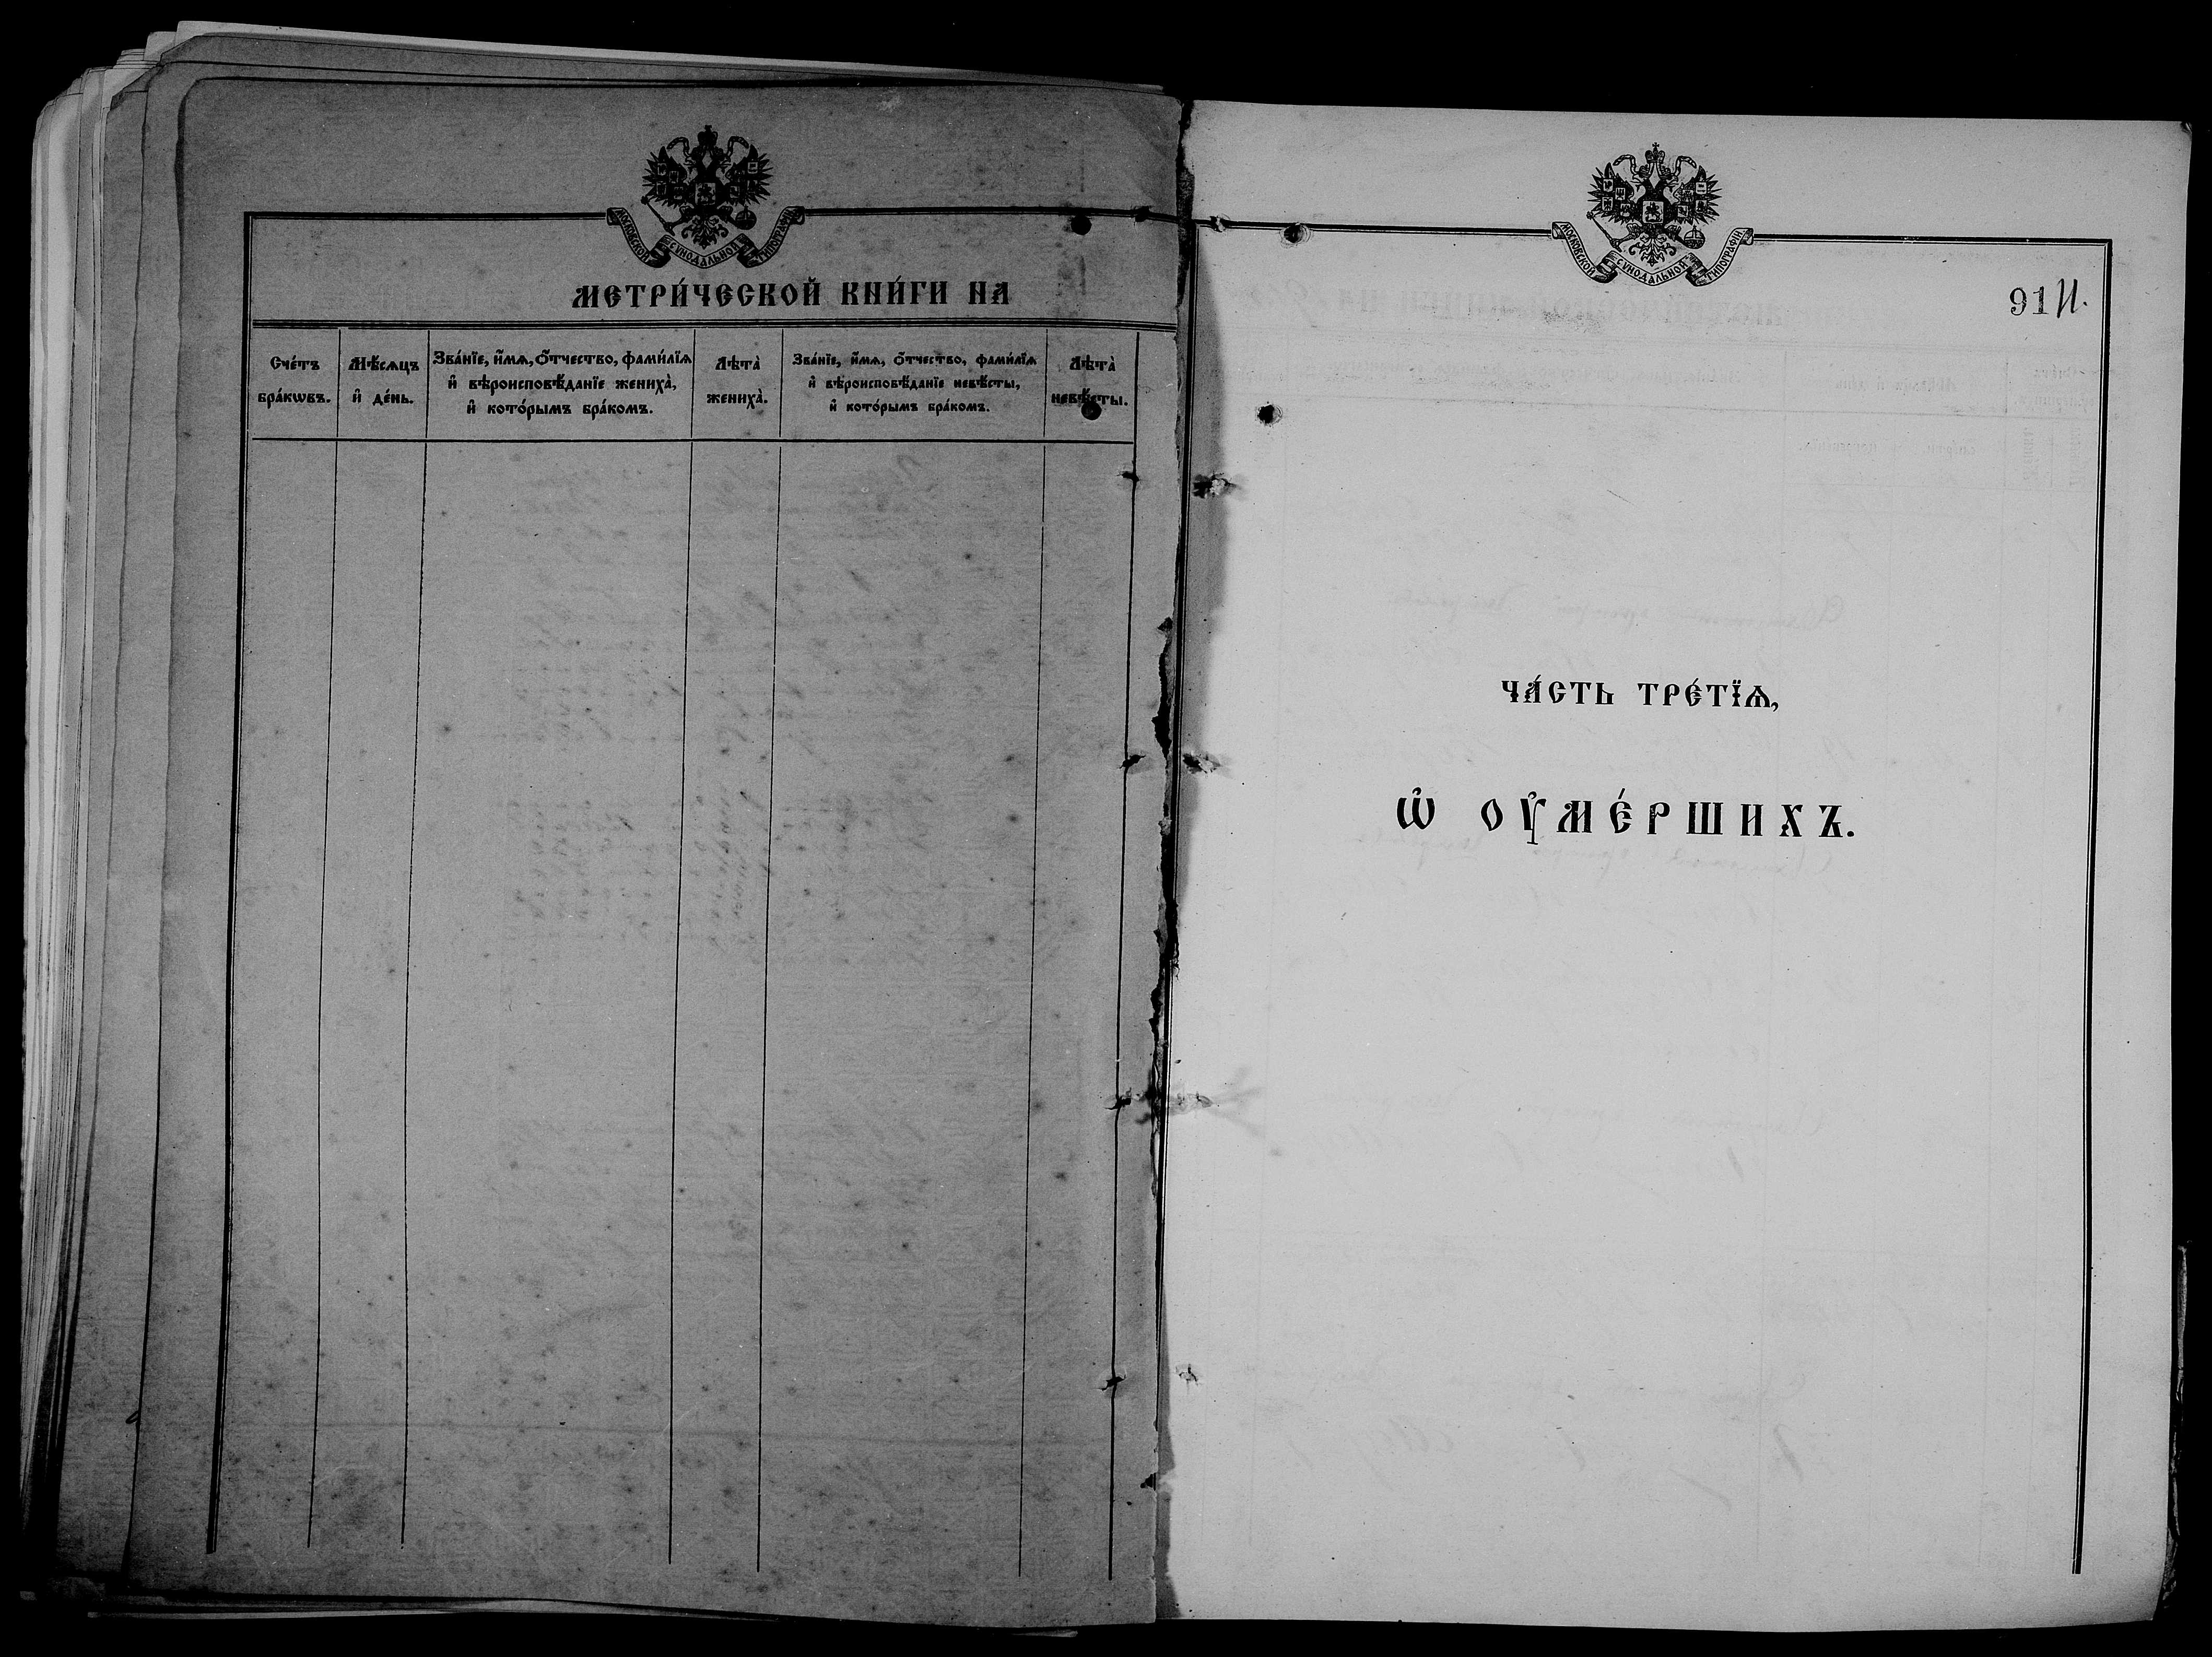 МОСКОВСКОЙ СѴНОДАЛЬНОЙ ТИПОГРАФІИ
МЕТРИ́ЧЕСКОЙ КНИ́ГИ НА
Сче́тъ бра́кѡвъ.
Мѣ́сѧцъ и҆ де́нь.
Зва́нїе, и҆́мѧ, ѻ҆́тчество, фамѝлїѧ
и҆ вѣроисповѣ́данїе жениха̀,
и҆ кото́рымъ бра́комъ.
Лѣта̀ жениха̀.
Зва́нїе, и҆́мѧ, ѻ҆́тчество, фамѝлїѧ
и҆ вѣроисповѣ́данїе невѣ́сты,
и҆ кото́рымъ бра́комъ.
Лѣта̀ невѣ́сты.
МОСКОВСКОЙ СѴНОДАЛЬНОЙ ТИПОГРАФІИ
91 И.
ЧА́СТЬ ТРЕ́ТЇѦ,
Ѡ҆ ОУ҆МЕ́РШИХЪ.